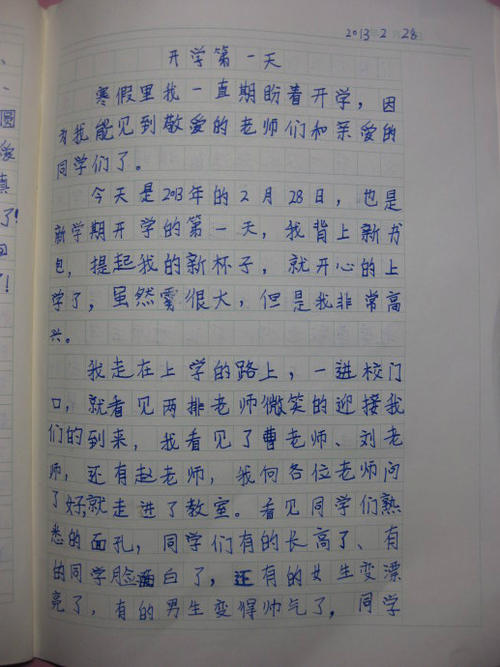 2013 2 28
开学第一天
寒假里我一直期盼着开学，因
为我能见到敬爱的老师们和亲爱的
同学们了。
今天是2013年的2月28日，也是
新学期开学的第一天，我背上新书
包，提起我的新杯子，就开心的上
学了，虽然雾很大，但是我非常高
兴。
我走在上学的路上，一进校门
口，就看见两排老师微笑的迎接我
们的到来，我看见了曹老师、刘老
师，还有赵老师，我向各位老师问
了好，就走进了教室。看见同学们熟
悉的面孔，同学们有的长高了、有
的同学脸白了，还有的女生变漂
亮了，有的男生变得帅气了，同学
圆
真
了！
！